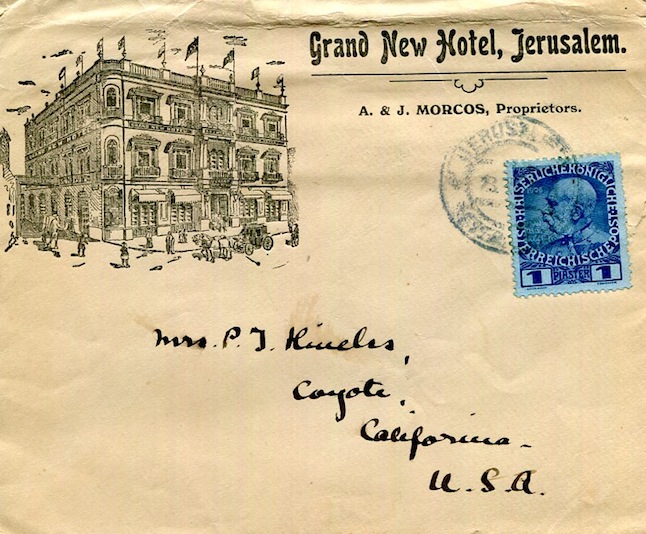 Grand New Hotel, Jerusalem.
A. & J. MORCOS, Proprietors.
JERUSAL
KAISERLICHE KÖNIGLICHE ÖSTERREICHISCHE POST
1908
1 PIASTER 1
Mrs. P. T.
Coyote,
California
U.S.A.